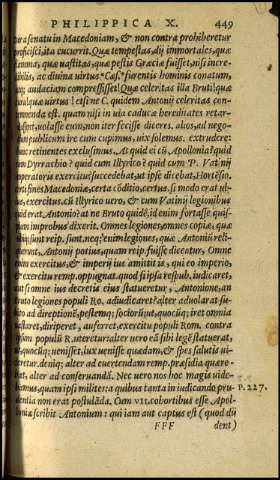 PHILIPPICA X. 449
tura senatu in Macedoniam, & non contra prohiberetur
proficisci, ita cucurrit. Quæ tempestas, dij immortales, quæ
flamma, quæ uastitas, quæ pestis Græciæ fuisset, nisi incre-
dibilis, ac diuina uirtus furentis hominis conatum,
atq; audaciam compressisset? Quæ celeritas illa Bruti? quæ
cura? quæ uirtus? etsi ne C. quidem Antonij celeritas con-
temnenda est. quam nisi in uia caducæ hereditates retar-
dassent, uolasse eum, non iter fecisse diceres. alios ad nego-
tium publicum ire cum cupimus, uix solemus extrudere:
hunc retinentes exclusimus. At quid ei cũ Apollonia? quid
cum Dyrrachio? quid cum Illyrico? quid cum P. Vatinij
imperatoris exercitu? succedebat, ut ipse dicebat, Hortẽsio.
certi fines Macedoniæ, certa cõditio, certus, si modo erat ul-
lus, exercitus. cũ Illyrico uero, & cum Vatinij legionibus
quid erat Antonio? at ne Bruto quidẽ. id enim fortasse quis-
piam improbus dixerit. Omnes legiones, omnes copiæ, quæ
ubiq; sunt, reip. sunt. neq; enim legiones, quæ Antoniũ reli-
querunt, Antonij potius, quam reip. fuisse dicentur. Omne
enim exercitus, & imperij ius amittit is, qui eo imperio,
& exercitu remp. oppugnat. quod si ipsa resp. iudicaret,
aut si omne ius decretis eius statueretur, Antonio ne, an
Bruto legiones populi Ro. adiudicaret? alter aduolarat su-
bito ad direptionẽ, pestemq; sociorũ: ut, quocũq; iret, omnia
uastaret, diriperet, auferret, exercitu populi Rom. contra
ipsum populũ R. uteretur: alter uero eã sibi legẽ statuerat,
ut, quocũq; uenisset, lux uenisse quædam, & spes salutis ui-
deretur. deniq; alter ad euertendam remp. præsidia quære-
bat, alter ad conseruandã. Nec uero nos hoc magis uide-
bamus, quam ipsi milites: a quibus tanta in iudicando pru-
dentia non erat postulãda. Cum VII. cohortibus esse Apol-
loniæ scribit Antonium: qui iam aut captus est (quod dij
P. 227.
FFF dent)